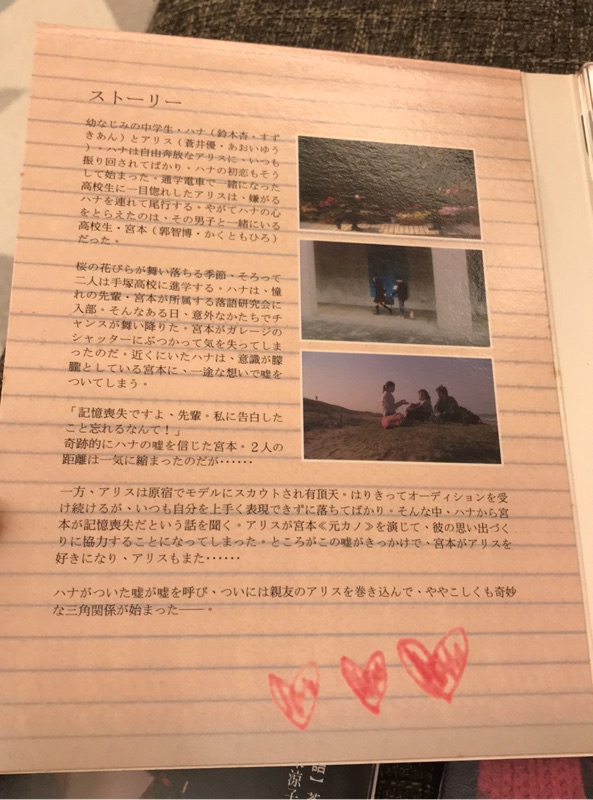 ストーリー
幼なじみの中学生・ハナ（鈴木杏・すず
きあん）とアリス（蒼井優・あおいゆう
）・ハナは自由奔放なアリスに・いつも
振り回されてばかり・ハナの初恋もそう
して始まった。通学電車で一緒になった
高校生に一目惚れしたアリスは、嫌がる
ハナを連れて尾行する・やがてハナの心
をとらえたのは、その男子と一緒にいる
高校生・宮本（郭智博・かくともひろ）
だった。
桜の花びらが舞い落ちる季節、そろって
二人は手塚高校に進学する。ハナは、憧
れの先輩・宮本が所属する落語研究会に
入部。そんなある日、意外なかたちでチ
ャンスが舞い降りた。宮本がガレージの
シャッターにぶつかって気を失ってしま
ったのだ。近くにいたハナは、意識が朦
朧としている宮本に、一途な想いで嘘を
ついてしまう。
「記憶喪失ですよ、先輩。私に告白した
こと忘れるなんて！」
奇跡的にハナの嘘を信じた宮本。２人の
距離は一気に縮まったのだが……
一方、アリスは原宿でモデルにスカウトされ有頂天。はりきってオーディションを受
け続けるが、いつも自分を上手く表現できずに落ちてばかり。そんな中、ハナから宮
本が記憶喪失だという話を聞く。アリスが宮本≪元カノ≫を演じて、彼の思い出づく
りに協力することになってしまった。ところがこの嘘がきっかけで、宮本がアリスを
好きになり、アリスもまた……
ハナがついた嘘が嘘を呼び、ついには親友のアリスを巻き込んで、ややこしくも奇妙
な三角関係が始まった――。
涼子